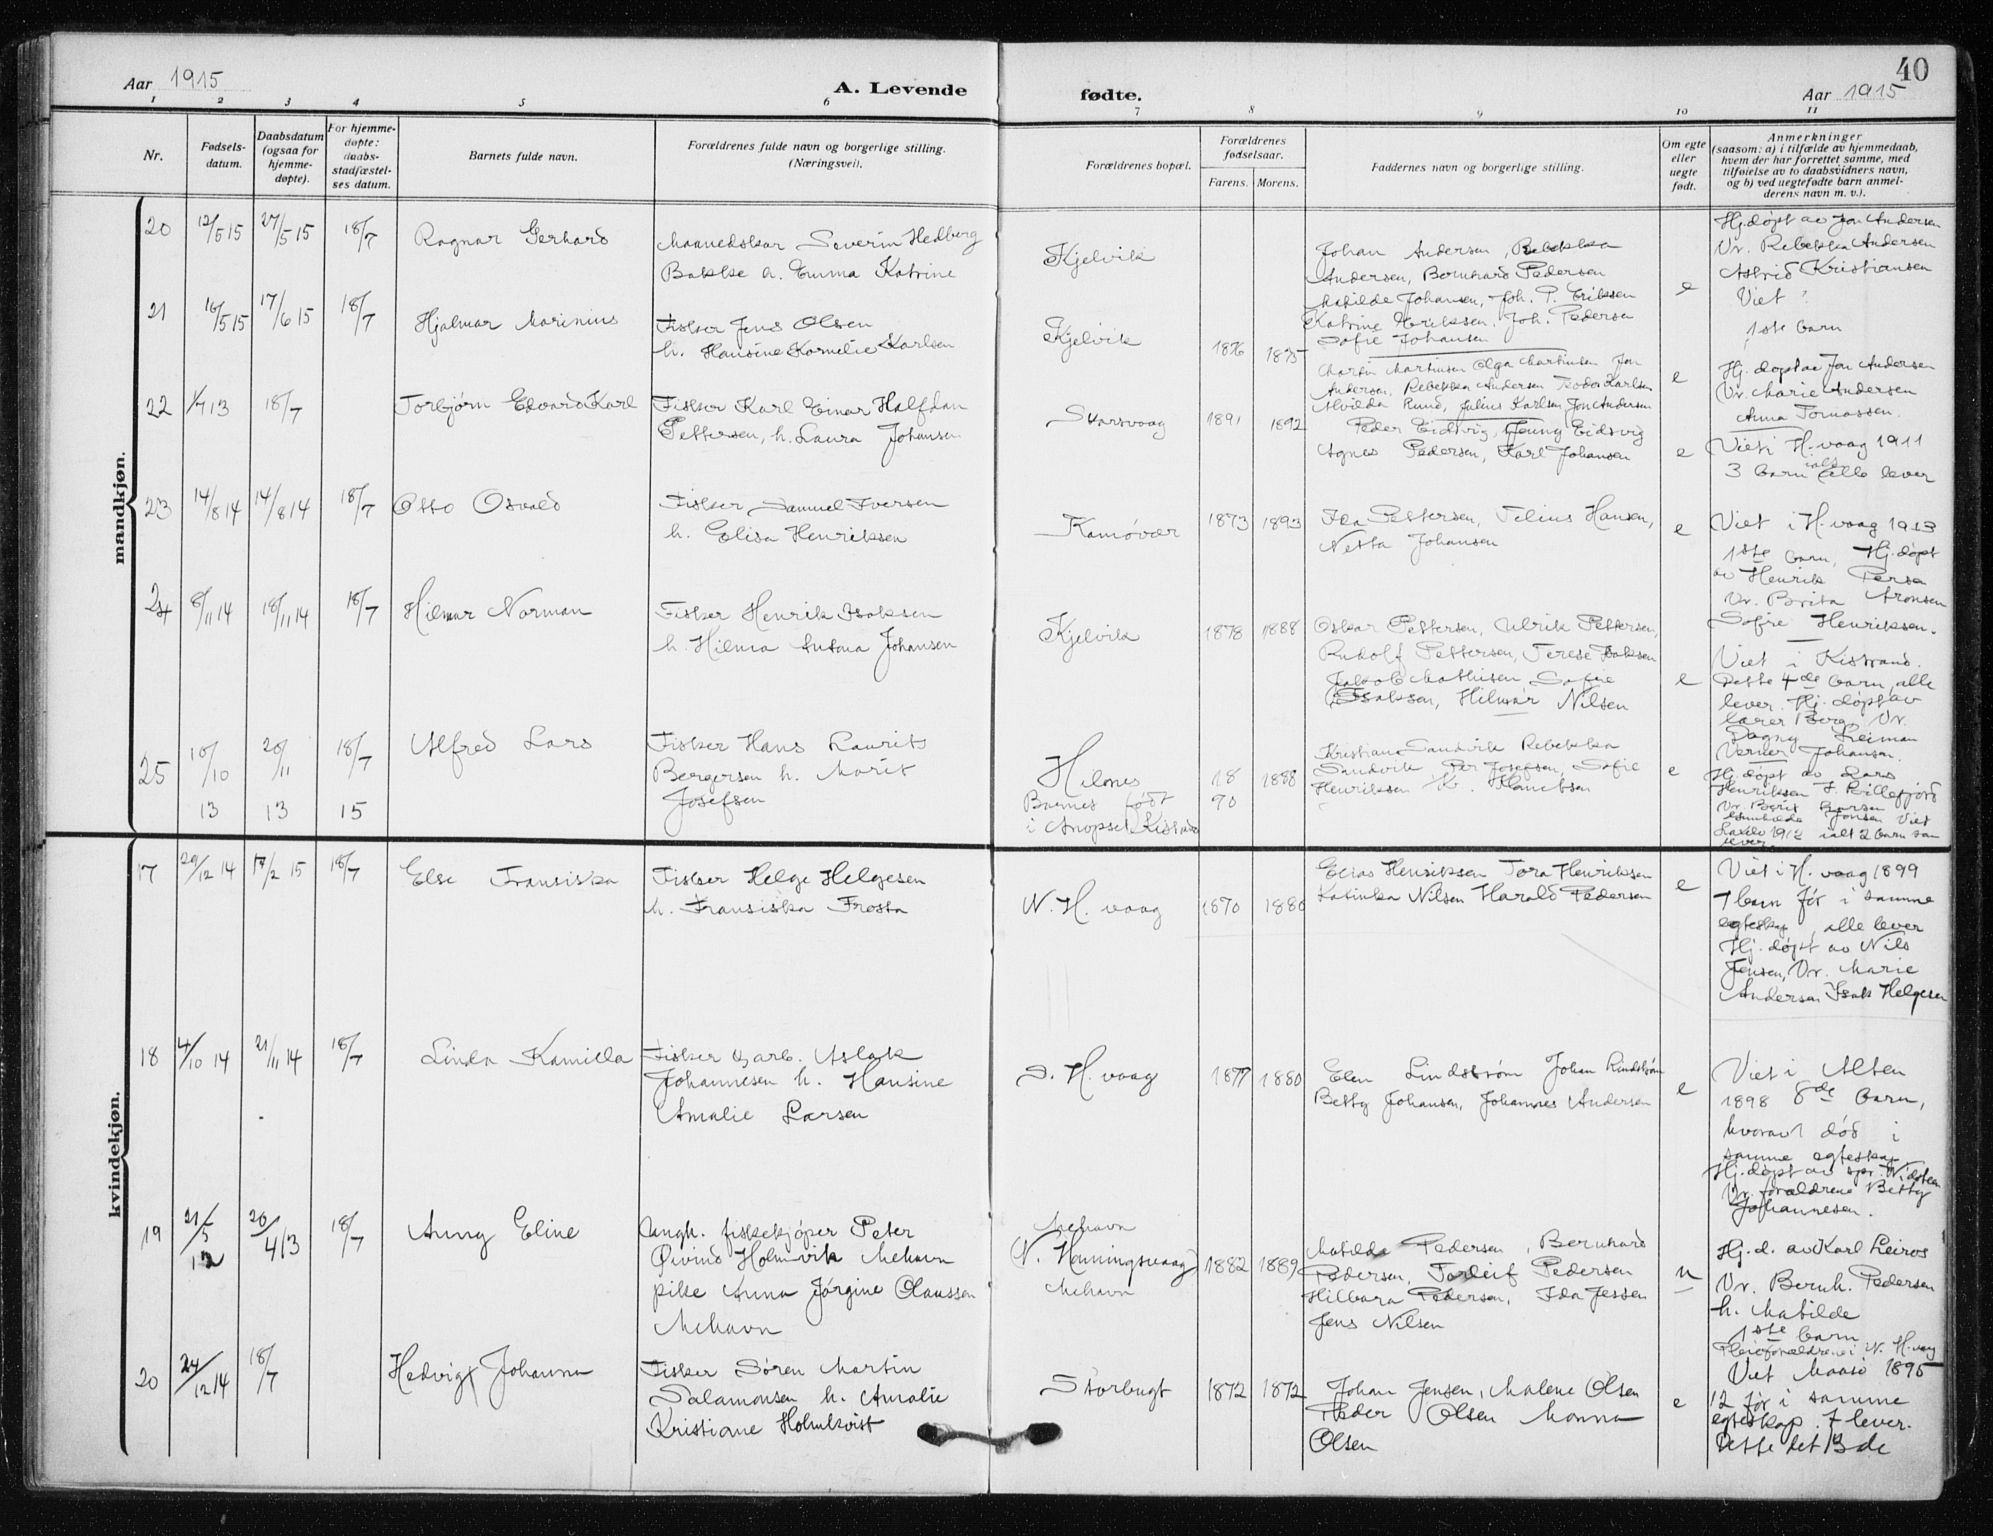 40
Aar 1915
A. Levende
fødte.
Aar 1915
1 2 3 4 5 6 7 8 9 10 11
Nr.
Fødsels-
datum.
Daabsdatum
(ogsaa for
hjemme-
døpte).
For hjemme-
døpte:
daabs-
stadfæstel-
ses datum.
Barnets fulde navn.
Forældrenes fulde navn og borgerlige stilling.
(Næringsvei).
Forældrenes bopæl.
Forældrenes
fødselsaar.
Farens. Morens.
Faddernes navn og borgerlige stilling.
Om egte
eller
uegte
født.
Anmerkninger
(saasom: a) i tilfælde av hjemmedaab,
hvem der har forrettet samme, med
tilføielse av to daabsvidners navn,
og b) ved uegtefødte barn anmel-
derens navn m. v.).
mandkjøn.
20 12/5 15 27/5 15 18/7
Ragnar Gerhard
Severin Hedberg
Bakke h. Emma Katrine
Kjelvik
Johan Andersen, Rebekka
Andersen, Bernhard Pedersen
Matilde Johansen, Joh. P. Eriksen
e
Hj.døpt av Jon Andersen
Vr. Rebekka Andersen
Astrid Kristiansen
Viet ?
1ste barn
21 16/5 15 17/6 15 18/7
Hjalmar Marinius
Fisker Jens Olsen
h. Hansine Kornelie Karlsen
Kjelvik
1876 1875
Katrine Eriksen, Joh. Pedersen
Sofie Johansen
Martin Martinsen Olga Martinsen Jon
Andersen, Rebekka Andersen Teodor Karlsen
Alvilda Rund, Julius Karlsen Jon Andersen
e
Hj. døpt av Jon Andersen
Vr. Marie Andersen
Anna Tomassen.
22 1/7 13 18/7
Torbjørn Edvard Karl
Fisker Karl Einar Halfdan
Pettersen, h. Laura Johansen
Skarsvaag
1891 1892
Peder Eidsvig, Jenny Eidsvig
Agnes Pedersen, Karl Johansen
e
Viet i H. vaag 1911
3 barn ialt alle lever
23 14/8 14 14/8 14 18/7
Otto Osvald
Fisker Samuel Iversen
h. Elisa Henriksen
Kamøvær
1873 1893
Ida Pettersen, Telius Hansen,
Netta Johansen
e
Viet i H. vaag 1913
1ste barn, Hj.døpt
av Henrik Persen
Vr. Brita Aronsen
Sofie Henriksen.
24 8/11 14 18/11 14 18/7
Hilmar Norman
Fisker Henrik Isaksen
h. Hilma Antona Johansen
Kjelvik
1878 1888
Oskar Pettersen, Ulrik Pettersen,
Rudolf Pettersen, Terese Isaksen
Jakob Mathisen, Sofie
Isaksen, Hilmar Nilsen
e
Viet i Kistrand.
Dette 4de barn, alle
lever. Hj. døpt av
lærer Berg. Vr.
Dagny Leiman
Verner Johansen.
25 10/10 13 20/11 13 18/7 15
Alfred Lars
Fisker Hans Laurits
Bergersen h. Marit
Josefsen
Hilnes
Barnet født
i Anopset Kistrand
18
90
1888
Kristiane Sandvik Rebekka
Sandvik Per Josefsen, Sofie
Henriksen
e
Hj.døpt av Lars
Henriksen I. Billefjord
Vr. Berit
Jonsen Viet
1912 ialt 2 barn som
lever.
kvindekjøn.
17 29/12 14 14/2 15 18/7
Else Fransiska
Fisker Helge Helgesen
h. Fransiska Frosta
N. H. vaag
1870 1880
Elias Henriksen Tora Henriksen
Katinka Nilsen Harald Pedersen
e
Viet i H. vaag 1899
7 barn før i samme
egteskap, alle lever
Hj. døpt av Nils
Jensen, Vr. Marie
Andersen Isak Helgesen
18 4/10 14 21/11 14 18/7
Linda Kamilla
Fisker og arb. Aslak
Johannesen h. Hansine
Amalie Larsen
S. H. vaag
1877 1880
Elen Lindstrøm Johan Lindstrøm
Betty Johansen, Johannes Andersen
e
Viet i Alten
1898 8de barn,
hvorav 1 død i
samme egteskap
Hj.døpt av spr. Widsteen
Vr. forældrene Betty
Johannesen.
19 21/5 12 20/4 13 18/7
Anny Eline
Ungk. fiskekjøper Peter
Øivind Holmvik Mehavn
pike Anna Jørgine Olaussen
Mehavn
Mehavn
N. Honningsvaag
Mehavn
1882 1889
Matilda Pedersen, Bernhard
Pedersen, Torleif Pedersen
Hilbara Pedersen, Ida Jessen
Jens Nilsen
u
Hj.d. av Karl Leiros
Vr. Bernh. Pedersen
h. Matilde
1ste barn
Pleieforældrene i N. H.vaag
20 24/12 14 18/7
Hedvig Johanna
Fisker Søren Martin
Salamonsen h. Amalie
Kristiane Holmkvist
Storbugt
1872 1872
Johan Jensen, Malene Olsen
Peder Olsen Monna
Olsen
e
Viet Maasø 1895
12 før i samme
egteskap. 7 lever.
Dette det 13de